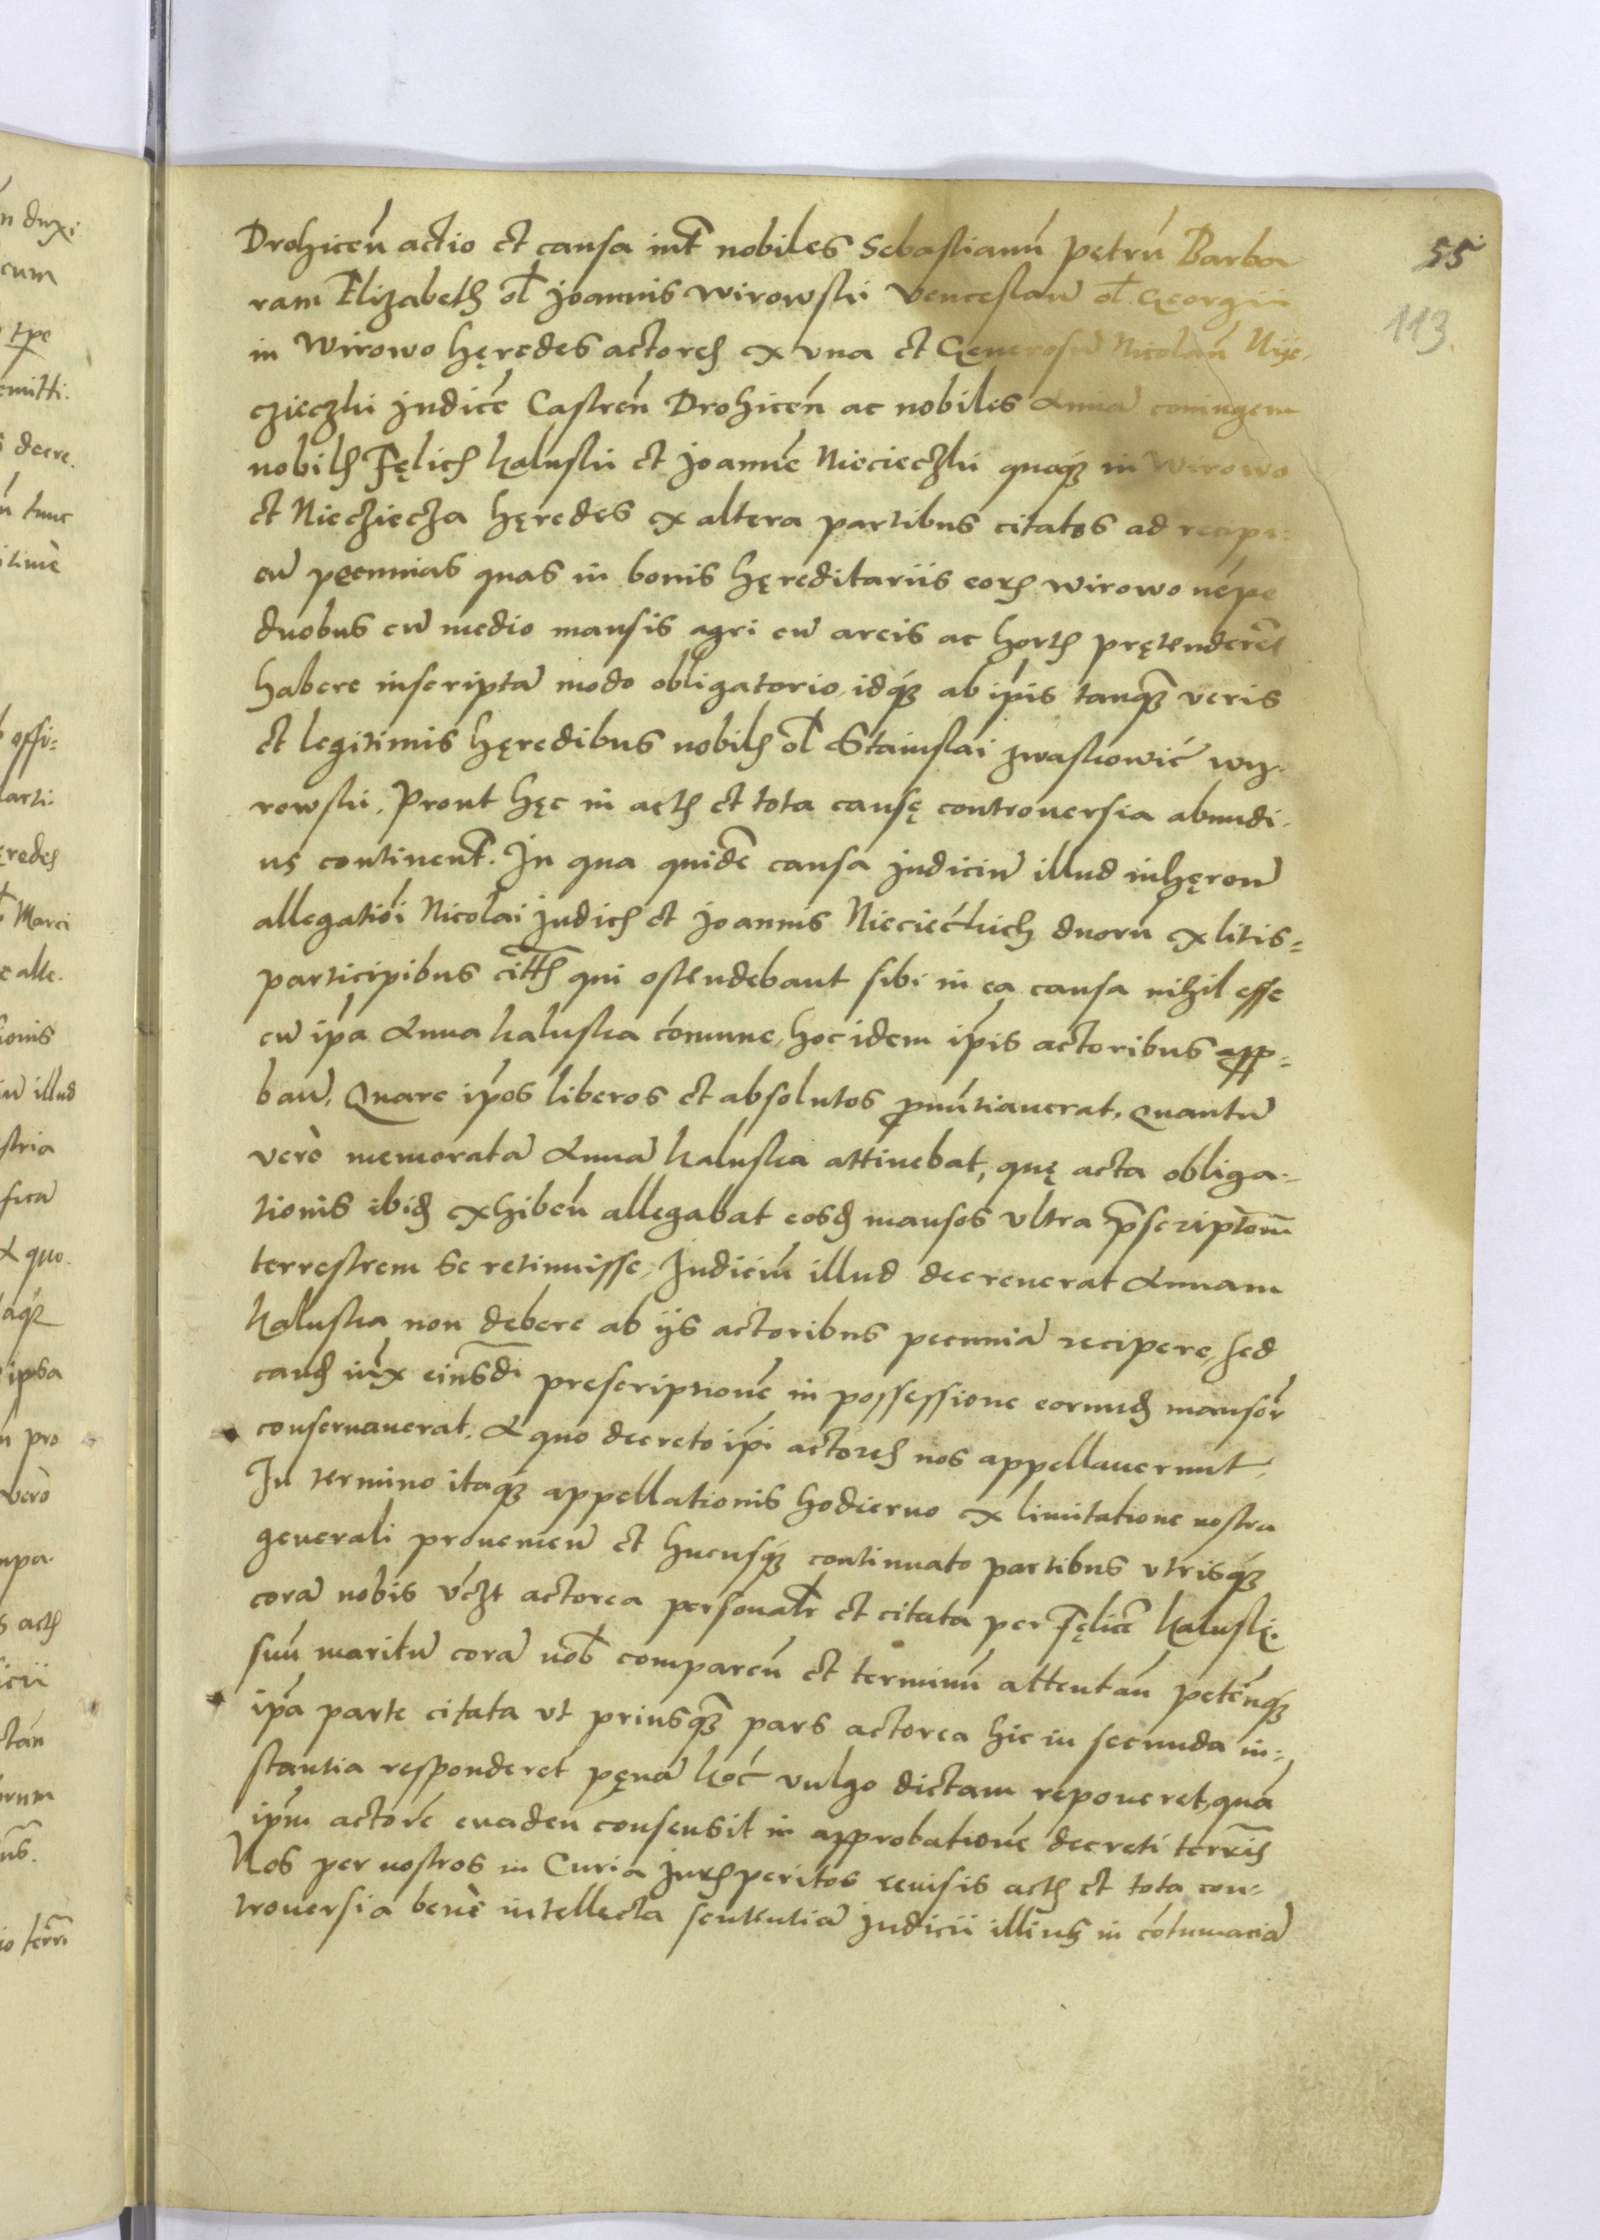 Drohiceń actio et causa inṫ nobiles Sebastianū Petrū Barba
ram Elizabeth ol̄ Joannis Wirowski Venceslaū ol̄ Georgii
in Wirowo hęredes actores ex vna et Generosū Nicolaū Nye,
czieczki Judicē Castreń Drohiceń ac nobiles Annā coniugem
nobilis Fęlicis Kaluski et Joannē Niecieczki quoque in Wirowo
et Niecziecza hęredes ex altera partibus citatos ad recipi:
eń pecunias quas in bonis hęreditariis eorū Wirowo nēpe
duobus cū medio mansis agri cū areis ac hortis prętenderēt
habere inscriptā modo obligatorio, idque ab ipis tanquā veris
et legitimis hęredibus nobilis ol̄ Stanislai Jwaskowić Wy-
rowski. Prout hęc in actis et tota causę controuersia abundi-
us continenṫ. In qua quidē causa Judiciū illud inhęreń
allegatiōi Nicolai Judicis et Joannis Niecieckich duorū ex litis=
participibus citatis qui ostendebant sibi in ea causa nihil esse
cū ipa Anna Kaluska cōmune, hoc idem ipis actoribus app-
bań. Quare ipos liberos et absolutos pronūtiauerat. Quantū
verò memoratā Annā Kaluska attinebat, quę acta obliga-
tionis ibidē exhibeń allegabat eosdē mansos vltra pscriptionē
terrestrem se retinuisse, Judiciū illud decreuerat Annam
Kaluska non debere ab ijs actoribus pecuniā recipere, sed
eandē iux eiusdi prescriptionē in possessione eorundē mansorū
conseruauerat. A quo decreto ipi actores nos appellauerunt,
In termino itaque appellationis hodierno ex limitatione nostra
generali proueniēn et hucusque continuato partibus vtrisque
corā nobis vczt actorea personalr et citata per Fęlicē Kaluski.
suū maritū corā nob̄ compareń et terminū attentań petēńque
ipa parte citata vt priusquā pars actorea hic in secunda in=
stantia responderet pęnā koć vulgo dictam reponeret, quā
ipm actorē euadeń consensit in approbationē decreti terrris
Nos per nostros in Curia Jurisperitos reuisis actis et tota con-
trouersia benè intellecta sententiā Judicii illius in cōtumaciā
55
113.